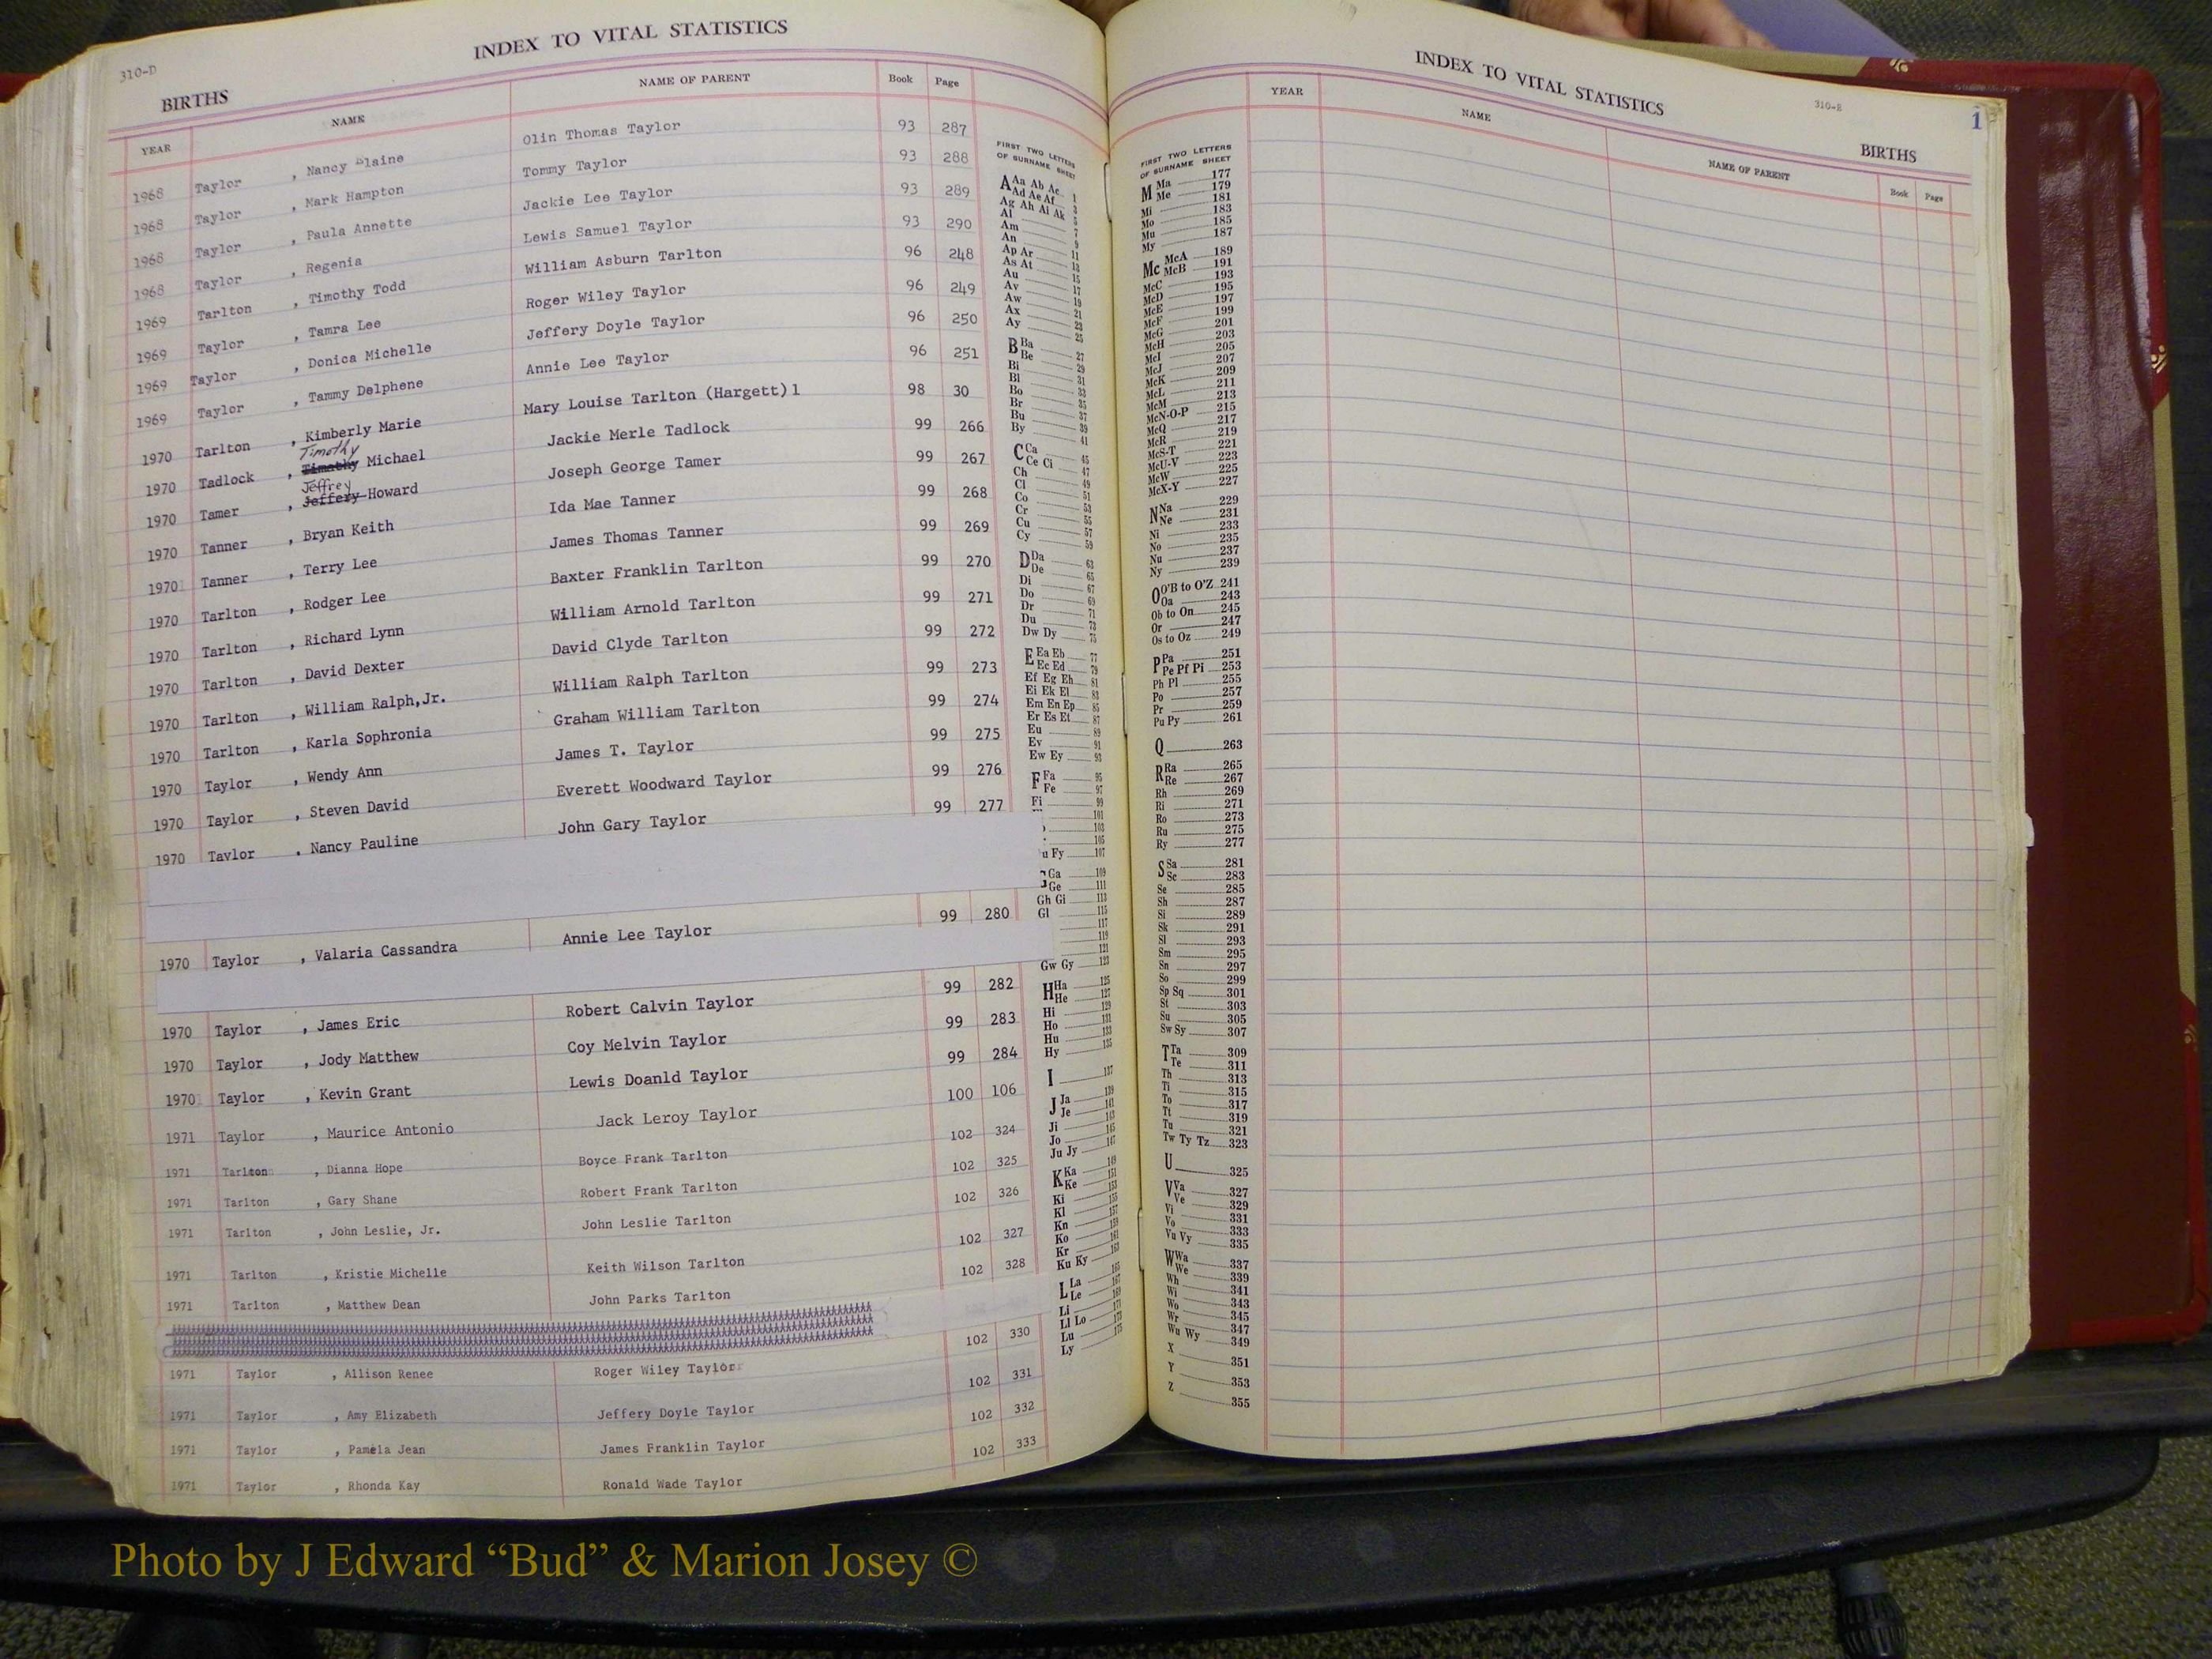 310-D
INDEX TO VITAL STATISTICS
BIRTHS
YEAR NAME NAME OF PARENT Book Page
1968 Taylor , Nancy Elaine Olin Thomas Taylor 93 287
1968 Taylor , Mark Hampton Tommy Taylor 93 288
1968 Taylor , Paula Annette Jackie Lee Taylor 93 289
1968 Taylor , Regenia Lewis Samuel Taylor 93 290
1969 Tarlton , Timothy Todd William Asburn Tarlton 96 248
1969 Taylor , Tamra Lee Roger Wiley Taylor 96 249
1969 Taylor , Donica Michelle Jeffery Doyle Taylor 96 250
1969 Taylor , Tammy Delphene Annie Lee Taylor 96 251
1970 Tarlton , Kimberly Marie Mary Louise Tarlton (Hargett)1 98 30
Timothy
1970 Tadlock , Michael Jackie Merle Tadlock 99 266
Jeffrey
1970 Tamer , Jeffery Howard Joseph George Tamer 99 267
1970 Tanner , Bryan Keith Ida Mae Tanner 99 268
1970 Tanner , Terry Lee James Thomas Tanner 99 269
1970 Tarlton , Rodger Lee Baxter Franklin Tarlton 99 270
1970 Tarlton , Richard Lynn William Arnold Tarlton 99 271
1970 Tarlton , David Dexter David Clyde Tarlton 99 272
1970 Tarlton , William Ralph,Jr. William Ralph Tarlton 99 273
1970 Tarlton , Karla Sophronia Graham William Tarlton 99 274
1970 Taylor , Wendy Ann James T. Taylor 99 275
1970 Taylor , Steven David Everett Woodward Taylor 99 276
1970 Taylor , Nancy Pauline John Gary Taylor 99 277
1970 Taylor , Valaria Cassandra Annie Lee Taylor 99 280
1970 Taylor , James Eric Robert Calvin Taylor 99 282
1970 Taylor , Jody Matthew Coy Melvin Taylor 99 283
1970 Taylor , Kevin Grant Lewis Doanld Taylor 99 284
1971 Taylor , Maurice Antonio Jack Leroy Taylor 100 106
1971 Tarlton , Dianna Hope Boyce Frank Tarlton 102 324
1971 Tarlton , Gary Shane Robert Frank Tarlton 102 325
1971 Tarlton , John Leslie, Jr. John Leslie Tarlton 102 326
1971 Tarlton , Kristie Michelle Keith Wilson Tarlton 102 327
1971 Tarlton , Matthew Dean John Parks Tarlton 102 328
1971 Taylor , Allison Renee Roger Wiley Taylor 102 330
1971 Taylor , Amy Elizabeth Jeffery Doyle Taylor 102 331
1971 Taylor , Pamela Jean James Franklin Taylor 102 332
1971 Taylor , Rhonda Kay Ronald Wade Taylor 102 333
FIRST TWO LETTERS
OF SURNAME SHEET
A Aa Ab Ac 1
Ad Ae Af 3
Ag Ah Ai Ak 5
Al 7
Am 9
An 11
Ap Ar 13
As At 15
Au 17
Av 19
Aw 21
Ax 23
Ay 25
B Ba 27
Be 29
Bi 31
Bl 33
Bo 35
Br 37
Bu 39
By 41
C Ca 45
Ce Ci 47
Ch 49
Cl 51
Co 53
Cr 55
Cu 57
Cy 59
D Da 63
De 65
Di 67
Do 69
Dr 71
Du 73
Dw Dy 75
E Ea Eb 77
Ec Ed 79
Ef Eg Eh 81
Ei Ek El 83
Em En Ep 85
Er Es Et 87
Eu 89
Ev 91
Ew Ey 93
F Fa 95
Fe 97
Fi 99
101
103
105
u Fy 107
Ga 109
Ge 111
Gh Gi 113
Gl 115
117
119
121
Gw Gy 123
H Ha 125
He 127
Hi 129
Ho 131
Hu 133
Hy 135
I 137
J Ja 139
Je 141
Ji 143
Jo 145
Ju Jy 147
K Ka 149
Ke 151
Ki 153
Kl 155
Kn 157
Ko 159
Kr 161
Ku Ky 163
L La 165
Le 167
Li 169
Ll Lo 171
Lu 173
Ly 175
INDEX TO VITAL STATISTICS
310-E
1
BIRTHS
YEAR NAME NAME OF PARENT Book Page
FIRST TWO LETTERS
OF SURNAME SHEET
M Ma 177
Me 179
Mi 181
Mo 183
Mu 185
My 187
Mc McA 189
McB 191
McC 193
McD 195
McE 197
McF 199
McG 201
McH 203
McI 205
McJ 207
McK 209
McL 211
McM 213
McN-O-P 215
McQ 217
McR 219
McS-T 221
McU-V 223
McW 225
McX-Y 227
N Na 229
Ne 231
Ni 233
No 235
Nu 237
Ny 239
O O'B to O'Z 241
Oa 243
Ob to On 245
Or 247
Os to Oz 249
P Pa 251
Pe Pf Pi 253
Ph Pl 255
Po 257
Pr 259
Pu Py 261
Q 263
R Ra 265
Re 267
Rh 269
Ri 271
Ro 273
Ru 275
Ry 277
S Sa 281
Sc 283
Se 285
Sh 287
Si 289
Sk 291
Sl 293
Sm 295
Sn 297
So 299
Sp Sq 301
St 303
Su 305
Sw Sy 307
T Ta 309
Te 311
Th 313
Ti 315
To 317
Tt 319
Tu 321
Tw Ty Tz 323
U 325
V Va 327
Ve 329
Vi 331
Vo 333
Vu Vy 335
W Wa 337
We 339
Wh 341
Wi 343
Wo 345
Wr 347
Wu Wy 349
X 351
Y 353
Z 355
Photo by J Edward “Bud” & Marion Josey ©